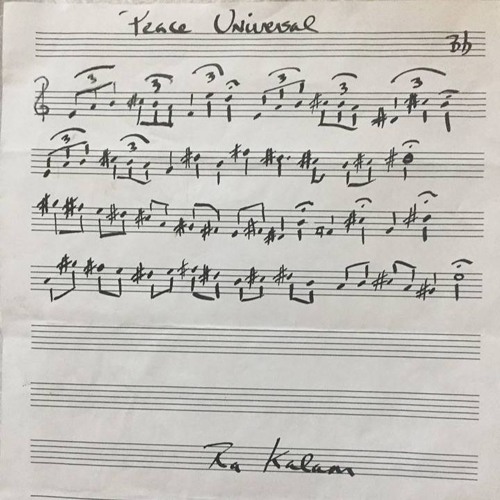 Peace Universal
Bb
3 3 3 3 3 3
3 3
Ra Kalam